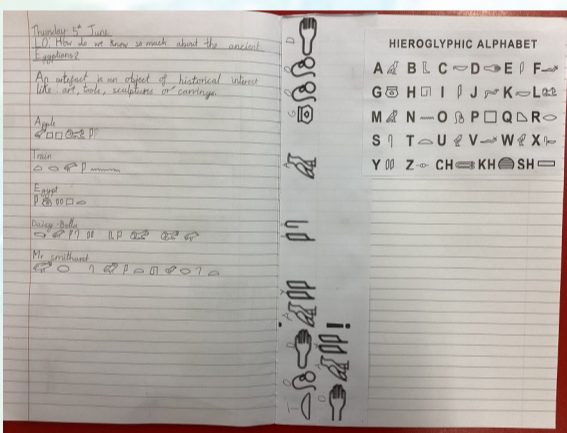 Thursday 5th June
LO: How do we know so much about the ancient
Egyptians?
An artefact is an object of historical interest
like art, tools, sculptures or carvings.
Apple
Train
Egypt
Daisy-Bella
Mr Smithurst
HIEROGLYPHIC ALPHABET
A B C D E F
G H I J K L
M N O P Q R
S T U V W X
Y Z CH KH SH